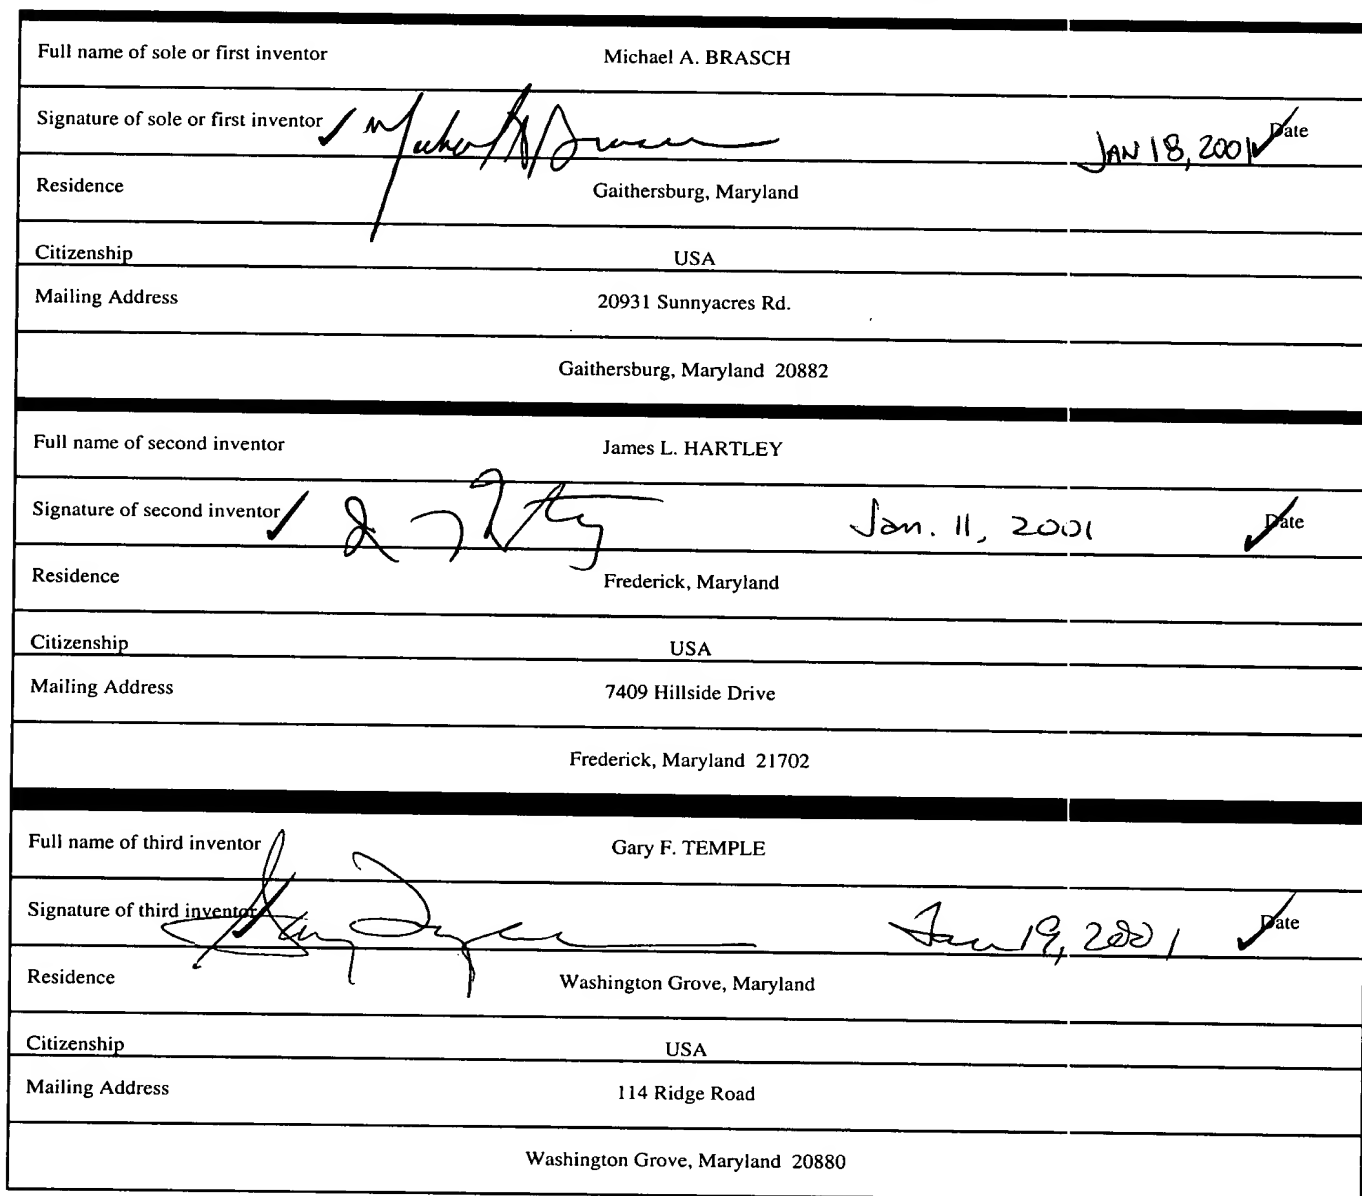 Full name of sole or first inventor Michael A. BRASCH
Signature of sole or first inventor ✓ Michael A Brasch JAN 18, 2001 ✓ Date
Residence Gaithersburg, Maryland
Citizenship USA
Mailing Address 20931 Sunnyacres Rd.
Gaithersburg, Maryland 20882
Full name of second inventor James L. HARTLEY
Signature of second inventor ✓ Jan. 11, 2001 ✓ Date
Residence Frederick, Maryland
Citizenship USA
Mailing Address 7409 Hillside Drive
Frederick, Maryland 21702
Full name of third inventor Gary F. TEMPLE
Signature of third inventor ✓ Jan 19, 2001 ✓ Date
Residence Washington Grove, Maryland
Citizenship USA
Mailing Address 114 Ridge Road
Washington Grove, Maryland 20880